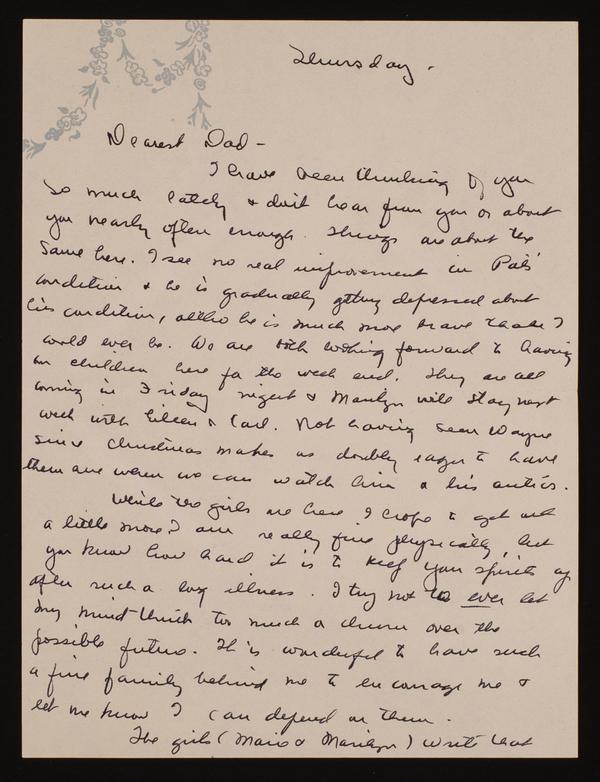 Thursday -
Dearest Dad -
I have been thinking of you
so much lately & don't hear from you or about
you nearly often enough. Things are about the
same here. I see no real improvement in Pal's
condition & he is gradually getting depressed about
his condition, altho he is much more brave than I
could ever be. We are both looking forward to having
our children here for the week end. They are all
coming in Friday night & Marilyn will stay next
week with Eileen & Carl. Not having seen Wayne
since Christmas makes us doubly eager to have
them and when we can watch him & his antics.
While the girls are here I hope to get out
a little more. I am really fine physically, but
you know how hard it is to keep your spirits up
after such a long illness. I try not to ever let
my mind think too much or dwell over the
possible future. It is wonderful to have such
a fine family behind me to encourage me &
let me know I can depend on them.
The girls (Marie & Marilyn) write that